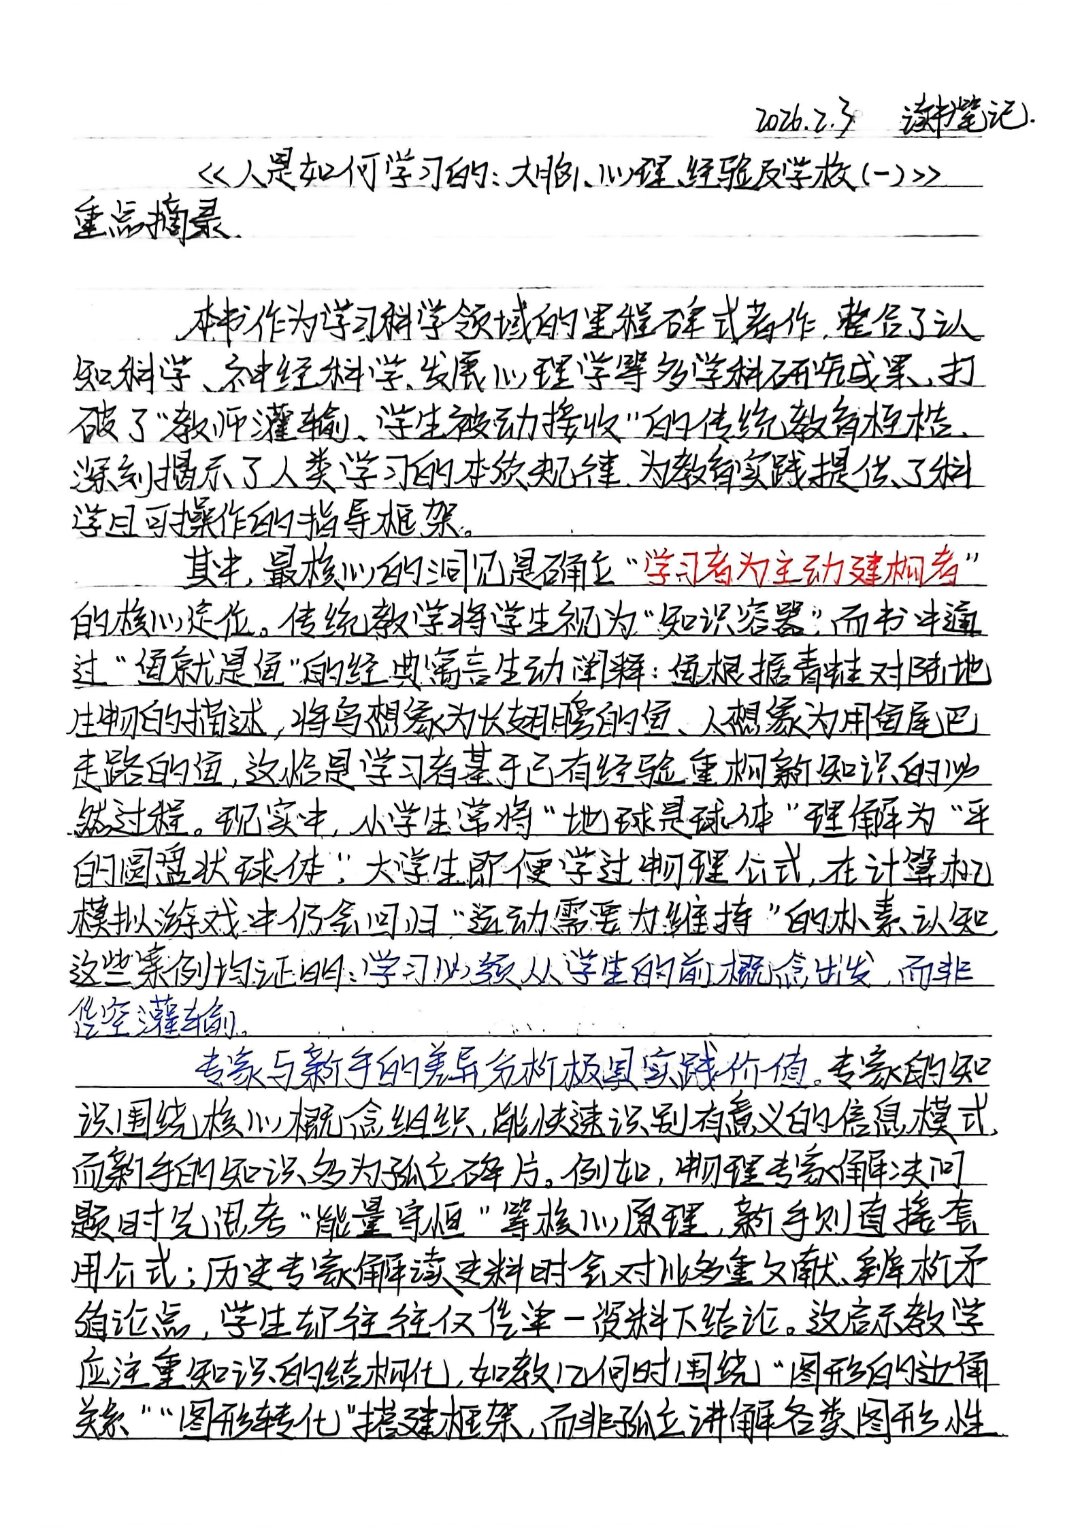 2026.2.3 读书笔记.
《人是如何学习的:大脑、心理、经验及学校(一)》
重点摘录.
本书作为学习科学领域的里程碑式著作,整合了认
知科学、神经科学、发展心理学等多学科研究成果,打
破了“教师灌输、学生被动接收”的传统教育桎梏、
深刻揭示了人类学习的本质规律,为教育实践提供了科
学且可操作的指导框架。
其中,最核心的洞见是确立“学习者为主动建构者”
的核心定位。传统教学将学生视为“知识容器”,而书中通
过“鱼就是鱼”的经典寓言生动阐释:鱼根据青蛙对陆地
生物的描述,将鸟想象为长翅膀的鱼、人想象为用鱼尾巴
走路的鱼,这恰是学习者基于已有经验重构新知识的必
然过程。现实中,小学生常将“地球是球体”理解为“平
的圆盘状球体”;大学生即便学过物理公式,在计算机
模拟游戏中仍会回归“运动需要力维持”的朴素认知
这些案例均证明:学习必须从学生的前概念出发,而非
凭空灌输。
专家与新手的差异分析极具实践价值。专家的知
识围绕核心概念组织,能快速识别有意义的信息模式,
而新手的知识多为孤立碎片。例如,物理专家解决问
题时先思考“能量守恒”等核心原理,新手则直接套
用公式;历史专家解读史料时会对比多重文献、辨析矛
盾论点,学生却往往仅凭单一资料下结论。这启示教学
应注重知识的结构化,如教几何时围绕“图形的边角
关系”“图形转化”搭建框架,而非孤立讲解各类图形性